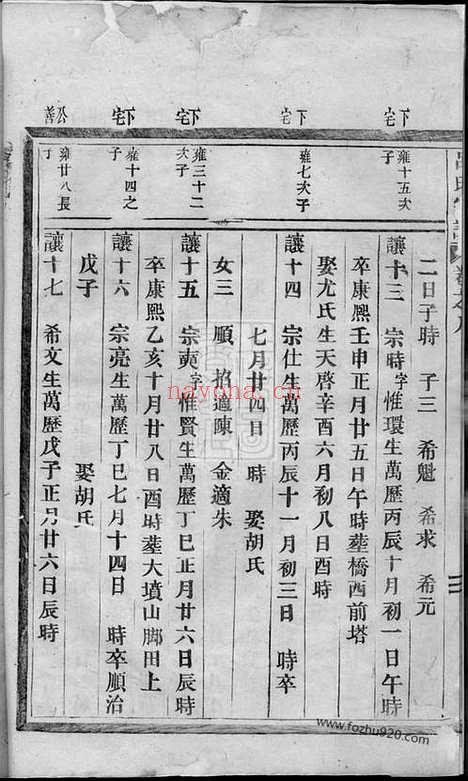 下宅
下宅
下宅
下宅
公善
雍十五次子
雍七次子
雍三十二次子
雍十四之子
雍廿八長子
二日子時 子三 希魁 希求 希元
讓十三 宗時字惟環生萬歷丙辰十月初一日午時
卒康熙壬申正月廿五日午時塟橋西前塔
娶尤氏生天啓辛酉六月初八日酉時
讓十四 宗仕生萬歷丙辰十一月初三日 時卒
七月廿四日 時 娶胡氏
女三 順 招適陳 金適朱
讓十五 宗奭字惟賢生萬歷丁巳正月廿六日辰時
卒康熙乙亥十月廿八日酉時塟大墳山脚田上
讓十六 宗亮生萬歷丁巳七月十四日 時卒順治
戊子 娶胡氏
讓十七 希文生萬歷戊子正月廿六日辰時
nayona.cn
www.fozhu920.com